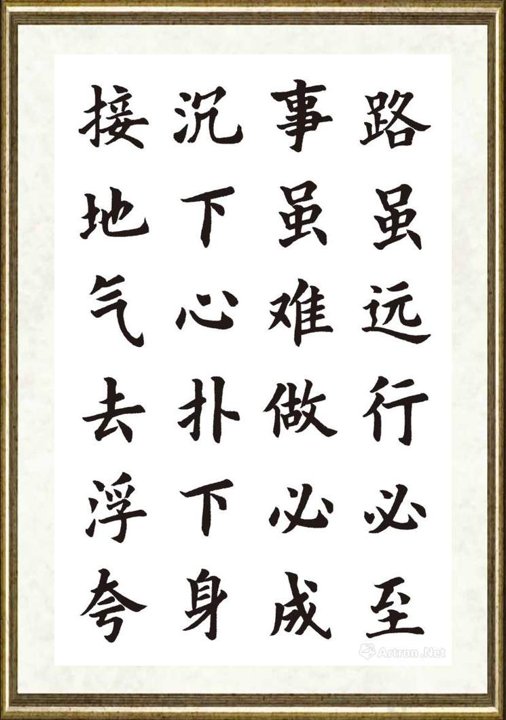 路虽远行必至
事虽难做必成
沉下心扑下身
接地气去浮夸
Artron.Net